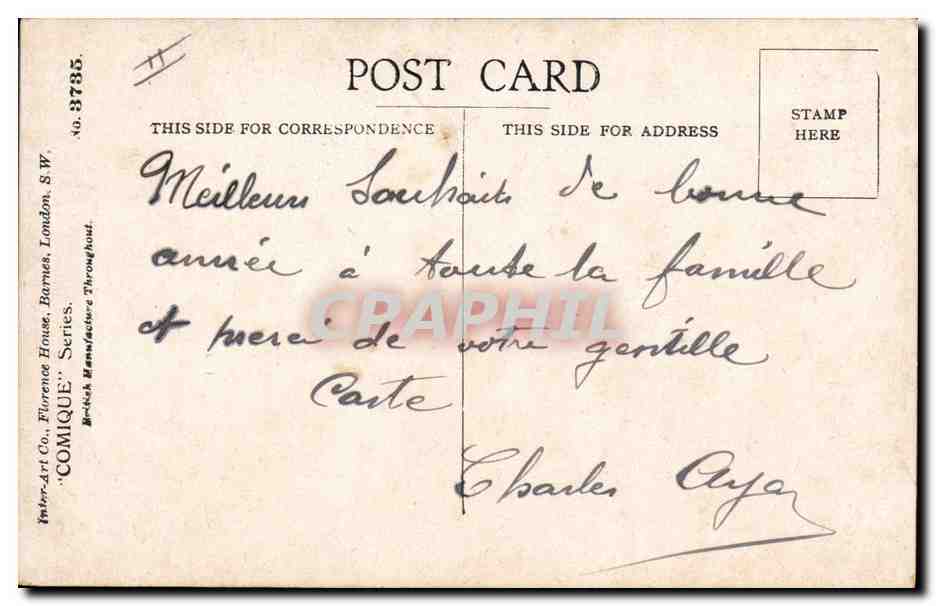 POST CARD
THIS SIDE FOR CORRESPONDENCE
THIS SIDE FOR ADDRESS
STAMP
HERE
Meilleurs Souhaits de bonne
année à toute la famille
et merci de votre gentille
Carte
Charles
No. 3735.
Inter-Art Co., Florence House, Barnes, London, S.W.
"COMIQUE" Series.
British Manufacture Throughout.
CRAPHIL